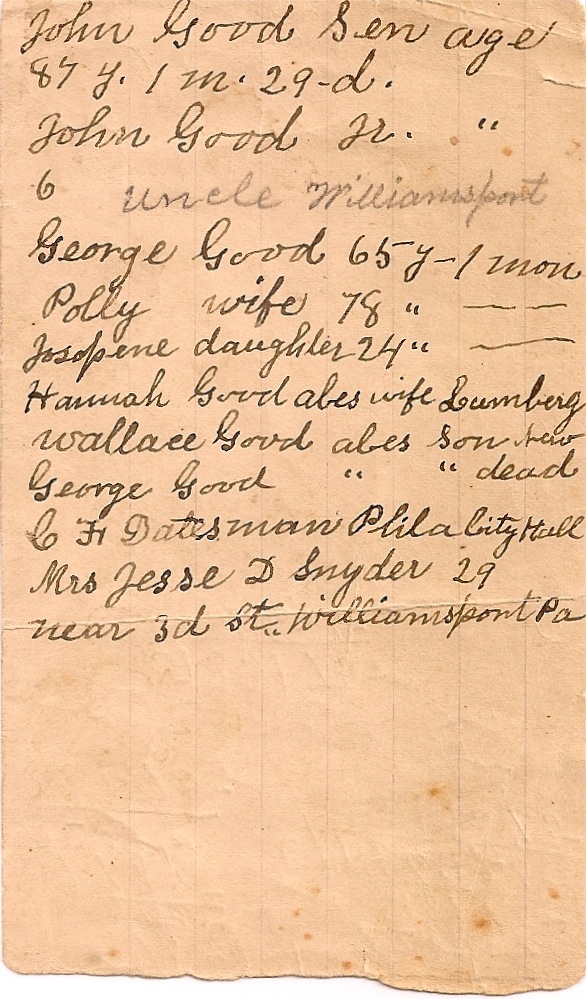 John Good Sen age
87 y. 1 m. 29-d.
John Good Jr. "
6 uncle Williamsport
George Good 65 y-1 mon
Polly wife 78 " — —
Josopene daughter 24 " —
Hannah Good abes wife Lumberg
Wallace Good abes Son
George Good " " dead
C H Datesman Phila City Hall
Mrs Jesse D Snyder 29
near 3d St. Williamsport Pa